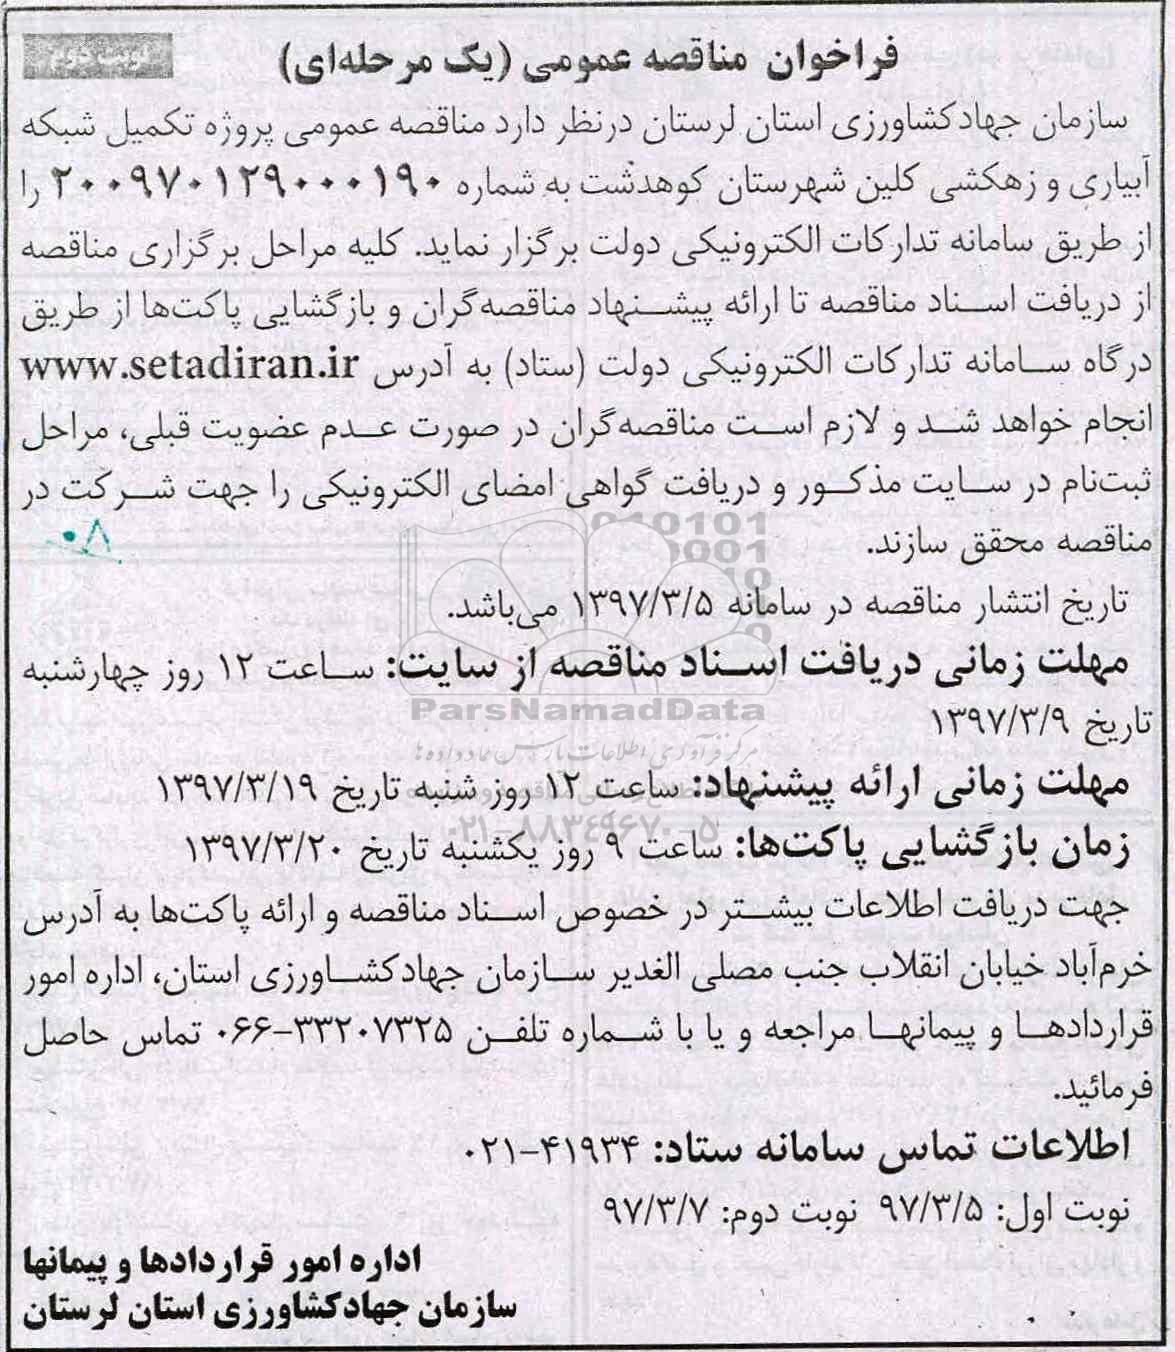 نوبت دوم
فراخوان مناقصه عمومی (یک مرحله‌ای)
سازمان جهادکشاورزی استان لرستان درنظر دارد مناقصه عمومی پروژه تکمیل شبکه
آبیاری و زهکشی کلین شهرستان کوهدشت به شماره ۲۰۰۹۷۰۱۲۹۰۰۰۱۹۰ را
از طریق سامانه تدارکات الکترونیکی دولت برگزار نماید. کلیه مراحل برگزاری مناقصه
از دریافت اسناد مناقصه تا ارائه پیشنهاد مناقصه‌گران و بازگشایی پاکت‌ها از طریق
درگاه سامانه تدارکات الکترونیکی دولت (ستاد) به آدرس www.setadiran.ir
انجام خواهد شد و لازم است مناقصه‌گران در صورت عدم عضویت قبلی، مراحل
ثبت‌نام در سایت مذکور و دریافت گواهی امضای الکترونیکی را جهت شرکت در
مناقصه محقق سازند.
تاریخ انتشار مناقصه در سامانه ۱۳۹۷/۳/۵ می‌باشد.
مهلت زمانی دریافت اسناد مناقصه از سایت: ساعت ۱۲ روز چهارشنبه
تاریخ ۱۳۹۷/۳/۹
مهلت زمانی ارائه پیشنهاد: ساعت ۱۲ روز شنبه تاریخ ۱۳۹۷/۳/۱۹
زمان بازگشایی پاکت‌ها: ساعت ۹ روز یکشنبه تاریخ ۱۳۹۷/۳/۲۰
جهت دریافت اطلاعات بیشتر در خصوص اسناد مناقصه و ارائه پاکت‌ها به آدرس
خرم‌آباد خیابان انقلاب جنب مصلی الغدیر سازمان جهادکشاورزی استان، اداره امور
قراردادها و پیمانها مراجعه و یا با شماره تلفن ۳۳۲۰۷۳۲۵-۰۶۶ تماس حاصل
فرمائید.
اطلاعات تماس سامانه ستاد: ۴۱۹۳۴-۰۲۱
نوبت اول: ۹۷/۳/۵ نوبت دوم: ۹۷/۳/۷
اداره امور قراردادها و پیمانها
سازمان جهادکشاورزی استان لرستان
ParsNamadData
مرکز فرآوری اطلاعات پارس نماد داده‌ها
۰۲۱-۸۸۳۴۹۶۷۰-۵